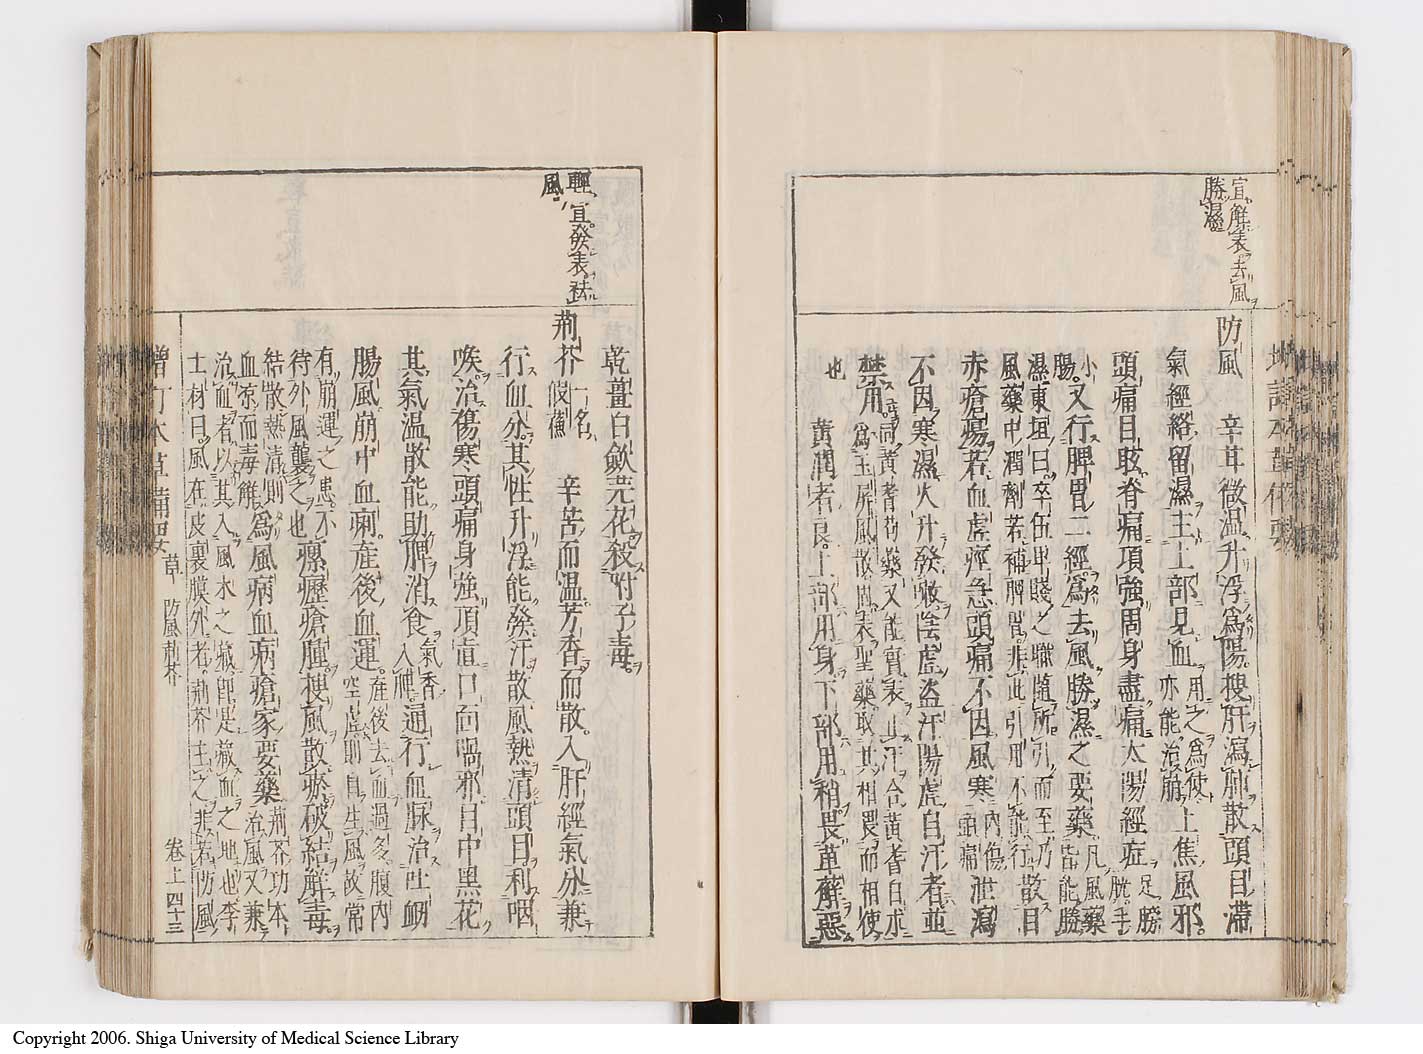 宣解表去風
勝濕
防風　辛甘微溫升浮爲陽搜肝瀉肺散頭目滯
氣經絡留濕主上部見血用之爲使亦能治崩上焦風邪
頭痛目眩脊痛項強周身盡痛太陽經症足膀胱手
小腸又行脾胃二經爲去風勝濕之要藥凡風藥皆能勝
濕東垣曰卒伍卑賤之職隨所引而至乃
風藥中潤劑若補脾胃非此引用不能行散目
赤瘡瘍若血虛痙急頭痛不因風寒內傷頭痛泄瀉
不因寒濕火升發嗽陰虛盜汗陽虛自汗者並
禁用同黃耆芍藥又能實表止汗合黃耆白朮
爲玉屏風散固表聖藥取其相畏而相使
也　黃潤者良上部用身下部用稍畏萆薢惡
乾薑白蘞芫花殺附子毒
輕宣發表祛
風
荊芥一名假蘇　辛苦而溫芳香而散入肝經氣分兼
行血分其性升浮能發汗散風熱清頭目利咽
喉治傷寒頭痛身強項直口面喎邪目中黑花
其氣溫散能助脾消食氣香入脾通行血脉治吐衂
腸風崩中血痢產後血運產後去血過多腹內空虛則自生風故常
有崩運之患不
待外風襲之也瘰癧瘡腫搜風散瘀破結解毒
結散熱清則
血凉而毒解爲風病血病瘡家要藥荊芥功本治風又兼
治血者以其入風木之臟即是藏血之地也李
士材曰風在皮裏膜外者荊芥主之非若防風
增訂本草備要　草　防風荊芥　卷上　四十三
Copyright 2006. Shiga University of Medical Science Library